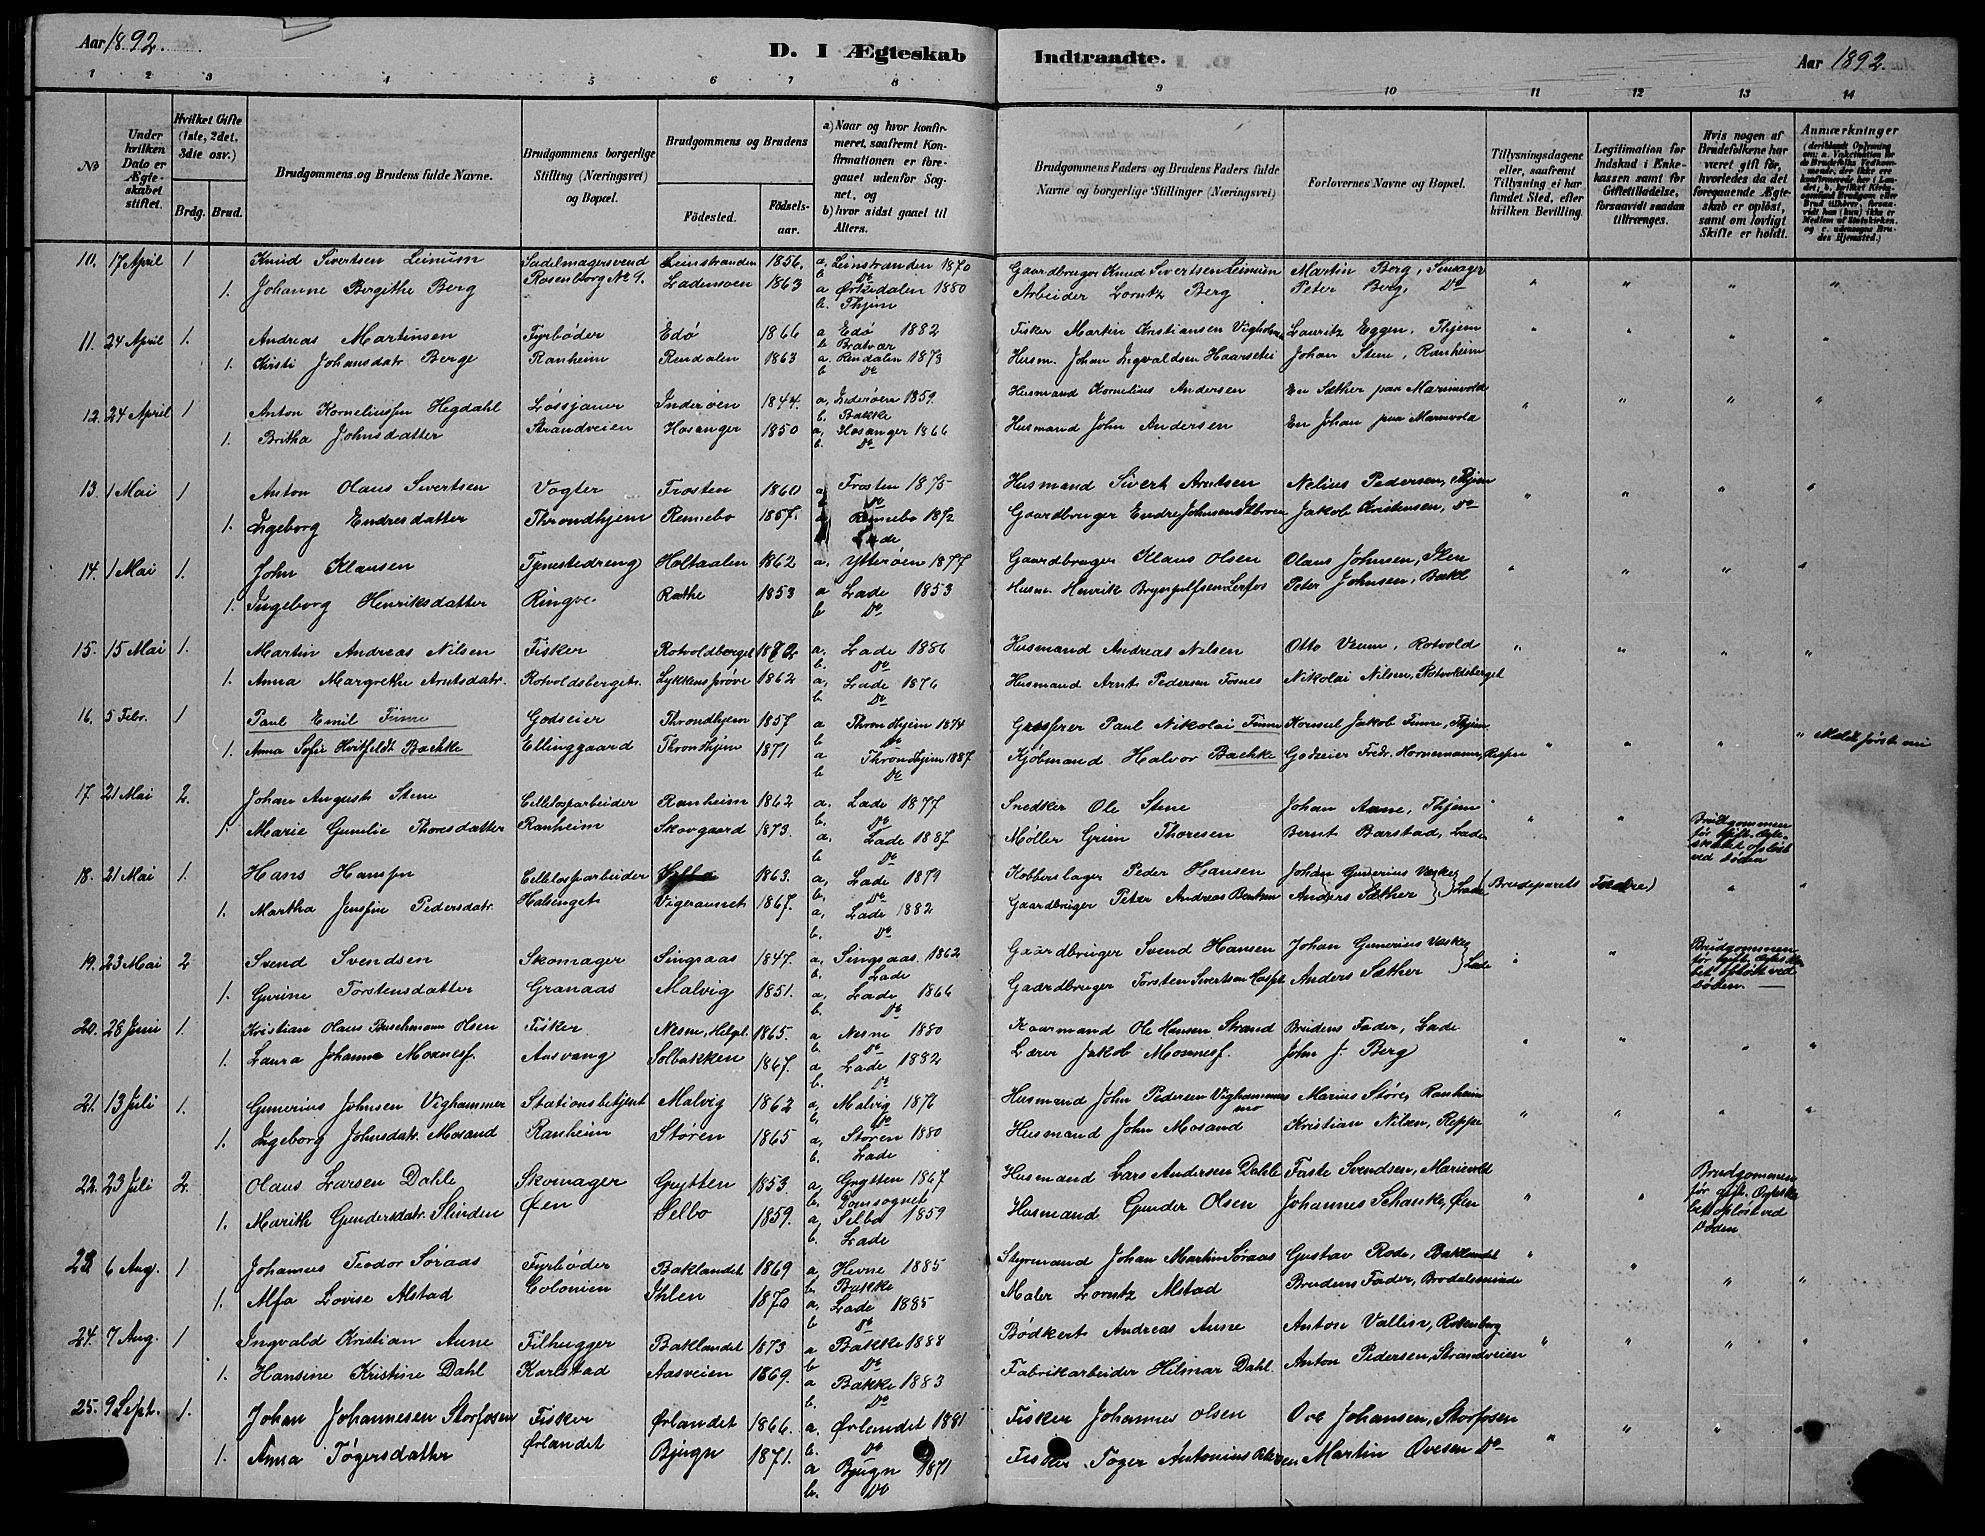 Aar 1892.
D. I Ægteskab Indtraadte.
Aar 1892.
1 2 3 4 5 6 7 8 9 10 11 12 13 14
No
Under hvilken Dato er Ægteskabet stiftet.
Hvilket Gifte (1ste, 2det, 3die osv.)
Brdg. Brud.
Brudgommens og Brudens fulde Navne.
Brudgommens borgerlige Stilling (Næringsvei) og Bopæl.
Brudgommens og Brudens
Födested.
Födselsaar.
a) Naar og hvor konfirmeret, saafremt Konfirmationen er foregaaet udenfor Sognet, og
b) hvor sidst gaaet til Alters.
Brudgommens Faders og Brudens Faders fulde Navne og borgerlige Stillinger (Næringsvei)
Forlovernes Navne og Bopæl.
Tillysningsdagene eller, saafremt Tillysning ei har fundet Sted, efter hvilken Bevilling.
Legitimation for Indskud i Enkekassen samt for Giftetilladelse, forsaavidt saadan tiltrænges.
Hvis nogen af Brudefolkene har været gift för, hvorledes da det foregaaende Ægteskab er oplöst, samt om lovligt Skifte er holdt.
Anmærkninger
10. 17 April 1 Knud Sivertsen Leinum Sadelmagersvend Leinstranden 1856. a. Leinstranden 1870 Gaardbruger Knud Sivertsen Leinum Martin Berg,
b. Do
1. Johanne Bergithe Berg Rosenborg No 9. Lademoen 1863 a Ørkedalen 1880 Arbeider Lorntz Berg Peter Berg, Do
b. Thjem
11. 24 April 1. Andreas Martinsen Fyrbøder Edø 1866 a Edø 1882 Fisker Martin Kristiansen Lauritz Eggen, Thjem
b Bratvær
1. Kristi Johansdatr. Berge Ranheim Rendalen 1863 a. Rendalen 1873 Husm. Johan Ingvaldsen Johan Stene, Ranheim
b. Do
12. 24 April 1 Anton Korneliussen Hegdahl Løssjauer Inderøen 1844. a, Inderøen 1859. Husmand Kornelius Andersen En Sæther paa
b. Bakke
1. Britha Johnsdatter Strandveien Hosanger 1850 a, Hosanger 1866 Husmand John Andersen En Johan paa
b. Do
13. 1 Mai 1 Anton Olaus Sivertsen Vogter Frosten 1860 a Frosten 1875 Husmand Sivert Arntsen Nelius Pedersen, Thjem
b Do
1. Ingeborg Endresdatter Throndhjem Rennebo 1857. a Rennebo 1872 Gaardbruger Endre Johnsen Jakob Kristensen, Do
Lade
14. 1 Mai 1. John Klausen Tjenestedreng Holtaalen 1862 a. Ytterøen 1877 Gaardbruger Klaus Olsen Olaus Johnsen, Ilen
1. Ingeborg Henriksdatter Ringve Rathe 1853 a Lade 1853 Husm. Henrik Brynjulfsen Lerfos Peter Johnsen, Bakl
b Do
15. 15 Mai 1. Martin Andreas Nilsen Fisker Rotvoldberget 1872 a, Lade 1886 Husmand Andreas Nilsen Otto Veum, Rotvold
b. Do
1. Anna Margrethe Arntsdatr. Rotvoldsberget. Lykkensprøve 1862 a, Lade 1876 Husmand Arnt Pedersen Fosnes Nikolai Nilsen, Rotvoldsberget
b. Do
16. 5 Febr. 1 Paul Emil Finne Godseier Throndhjem 1857 a Throndhjem 1874 Grosserer Paul Nikolai Finne Konsul Jakob Finne, Thjem
b Do
1. Anna Sofie Hvitfeldt Bachke Ellinggaard Throndhjem 1871 a Throndhjem 1887 Kjøbmand Halvor Bachke Godseier Fredr. Hornemann, Reppe Meldt først nu
b Do
17. 21 Mai 2. Johan August Stene Cellelosparbeider Ranheim 1862 a. Lade 1877 Snedker Ole Stene Johan Aune, Thjem
b. Do
1. Marie Gunilie Thoresdatter Ranheim Skovgaard 1873. a. Lade 1887. Møller Grim Thoresen Bernt Barstad, Lade Brudgommen før gift. Ægteskabet opløst ved Døden
b Do
18. 21 Mai 1. Hans Hansen Cellelosparbeider 1863. a, Lade 1879 Kobberslager Peder Hansen Johan Gunerius Væske Brudeparets Fædre)
b. Do
1. Martha Jensine Pedersdatr. Halsinget Vigeraunet 1867. a, Lade 1882 Gaardbruger Peter Andreas Anders Sæther Lade
b. Do
19. 23 Mai 2 Svend Svendsen Skomager Singsaas 1847. a, Singsaas. 1862 Gaardbruger Svend Hansen Johan Gunerius Væske Brudgommen før gift. Ægteskabet opløst ved Døden.
b. Lade
1. Gurine Torstensdatter Granaas Malvig 1851. a, Lade 1866 Gaardbruger Torsten Sivertsen Anders Sæther Lade
b. Do
20. 28 Juni 1. Kristian Olaus Buschmann Olsen Fisker Nesne, Helgel. 1865. a Nesne 1880 Kaarmand Ole Hansen Strand Brudens Fader, Lade
b. Do
1. Laura Johanne Moxnesf. Aasvang Solbakken 1867. a Lade 1882 Lærer Jakob Moxnesf. John J. Berg
b. Do
21. 13 Juli 1. Gunerius Johnsen Vighammer Stationsbetjent Malvig 1862 a, Malvig 1876 Husmand John Pedersen Vighammermo Marius Støre, Ranheim
b, Do
1. Ingeborg Johnsdatr. Mosand Ranheim Støren 1865 a, Støren 1880 Husmand John Mosand Kristian Nilsen, Reppe
b. Lade
22. 23 Juli 2. Olaus Larsen Dahle Skomager Grytten 1853. a, Grytten 1867 Husmand Lars Andersen Dahle Faste Svendsen, Brudgommen før gift. Ægteskabet opløst ved Døden
b. Domsognet
1. Marith Gundersdatr. Slinden Øen Selbo 1859. a, Selbo 1859 Husmand Gunder Olsen Johannes Schanke, Øen
b. Lade
23 6 Aug. 1 Johannes Teodor Søraas Fyrbøder Baklandet 1869 a Hevne 1885 Styrmand Johan Martin Søraas Gustav Rode, Baklandet
b Bakke
1. Alfa Lovise Alstad Colonien Ihlen 1870 a, Lade 1885 Maler Lorntz Alstad Brudens Fader,
b Do
24. 7 Aug. 1 Ingvald Kristian Aune Filhugger Baklandet 1873 a Bakke 1888 Bødker Andreas Aune Anton Vallin, Rosenborg
b Do
1. Hansine Kristine Dahl Karlstad Aasveien 1869. a Bakke 1883 Fabrikarbeider Hilmar Dahl Anton Pedersen, Strandveien
b. Do
25. 9 Sept. 1. Johan Johannesen Storfosen Fisker Ørlandet 1866. a. Ørlandet 1881 Fisker Johannes Olsen Ove Johansen, Storfosen
b. Do
1. Anna Tøgersdatter Ørlandet Bjugn 1871. a Bjugn 1871 Fisker Tøger Antonius Martin Ovesen Do
b. Do